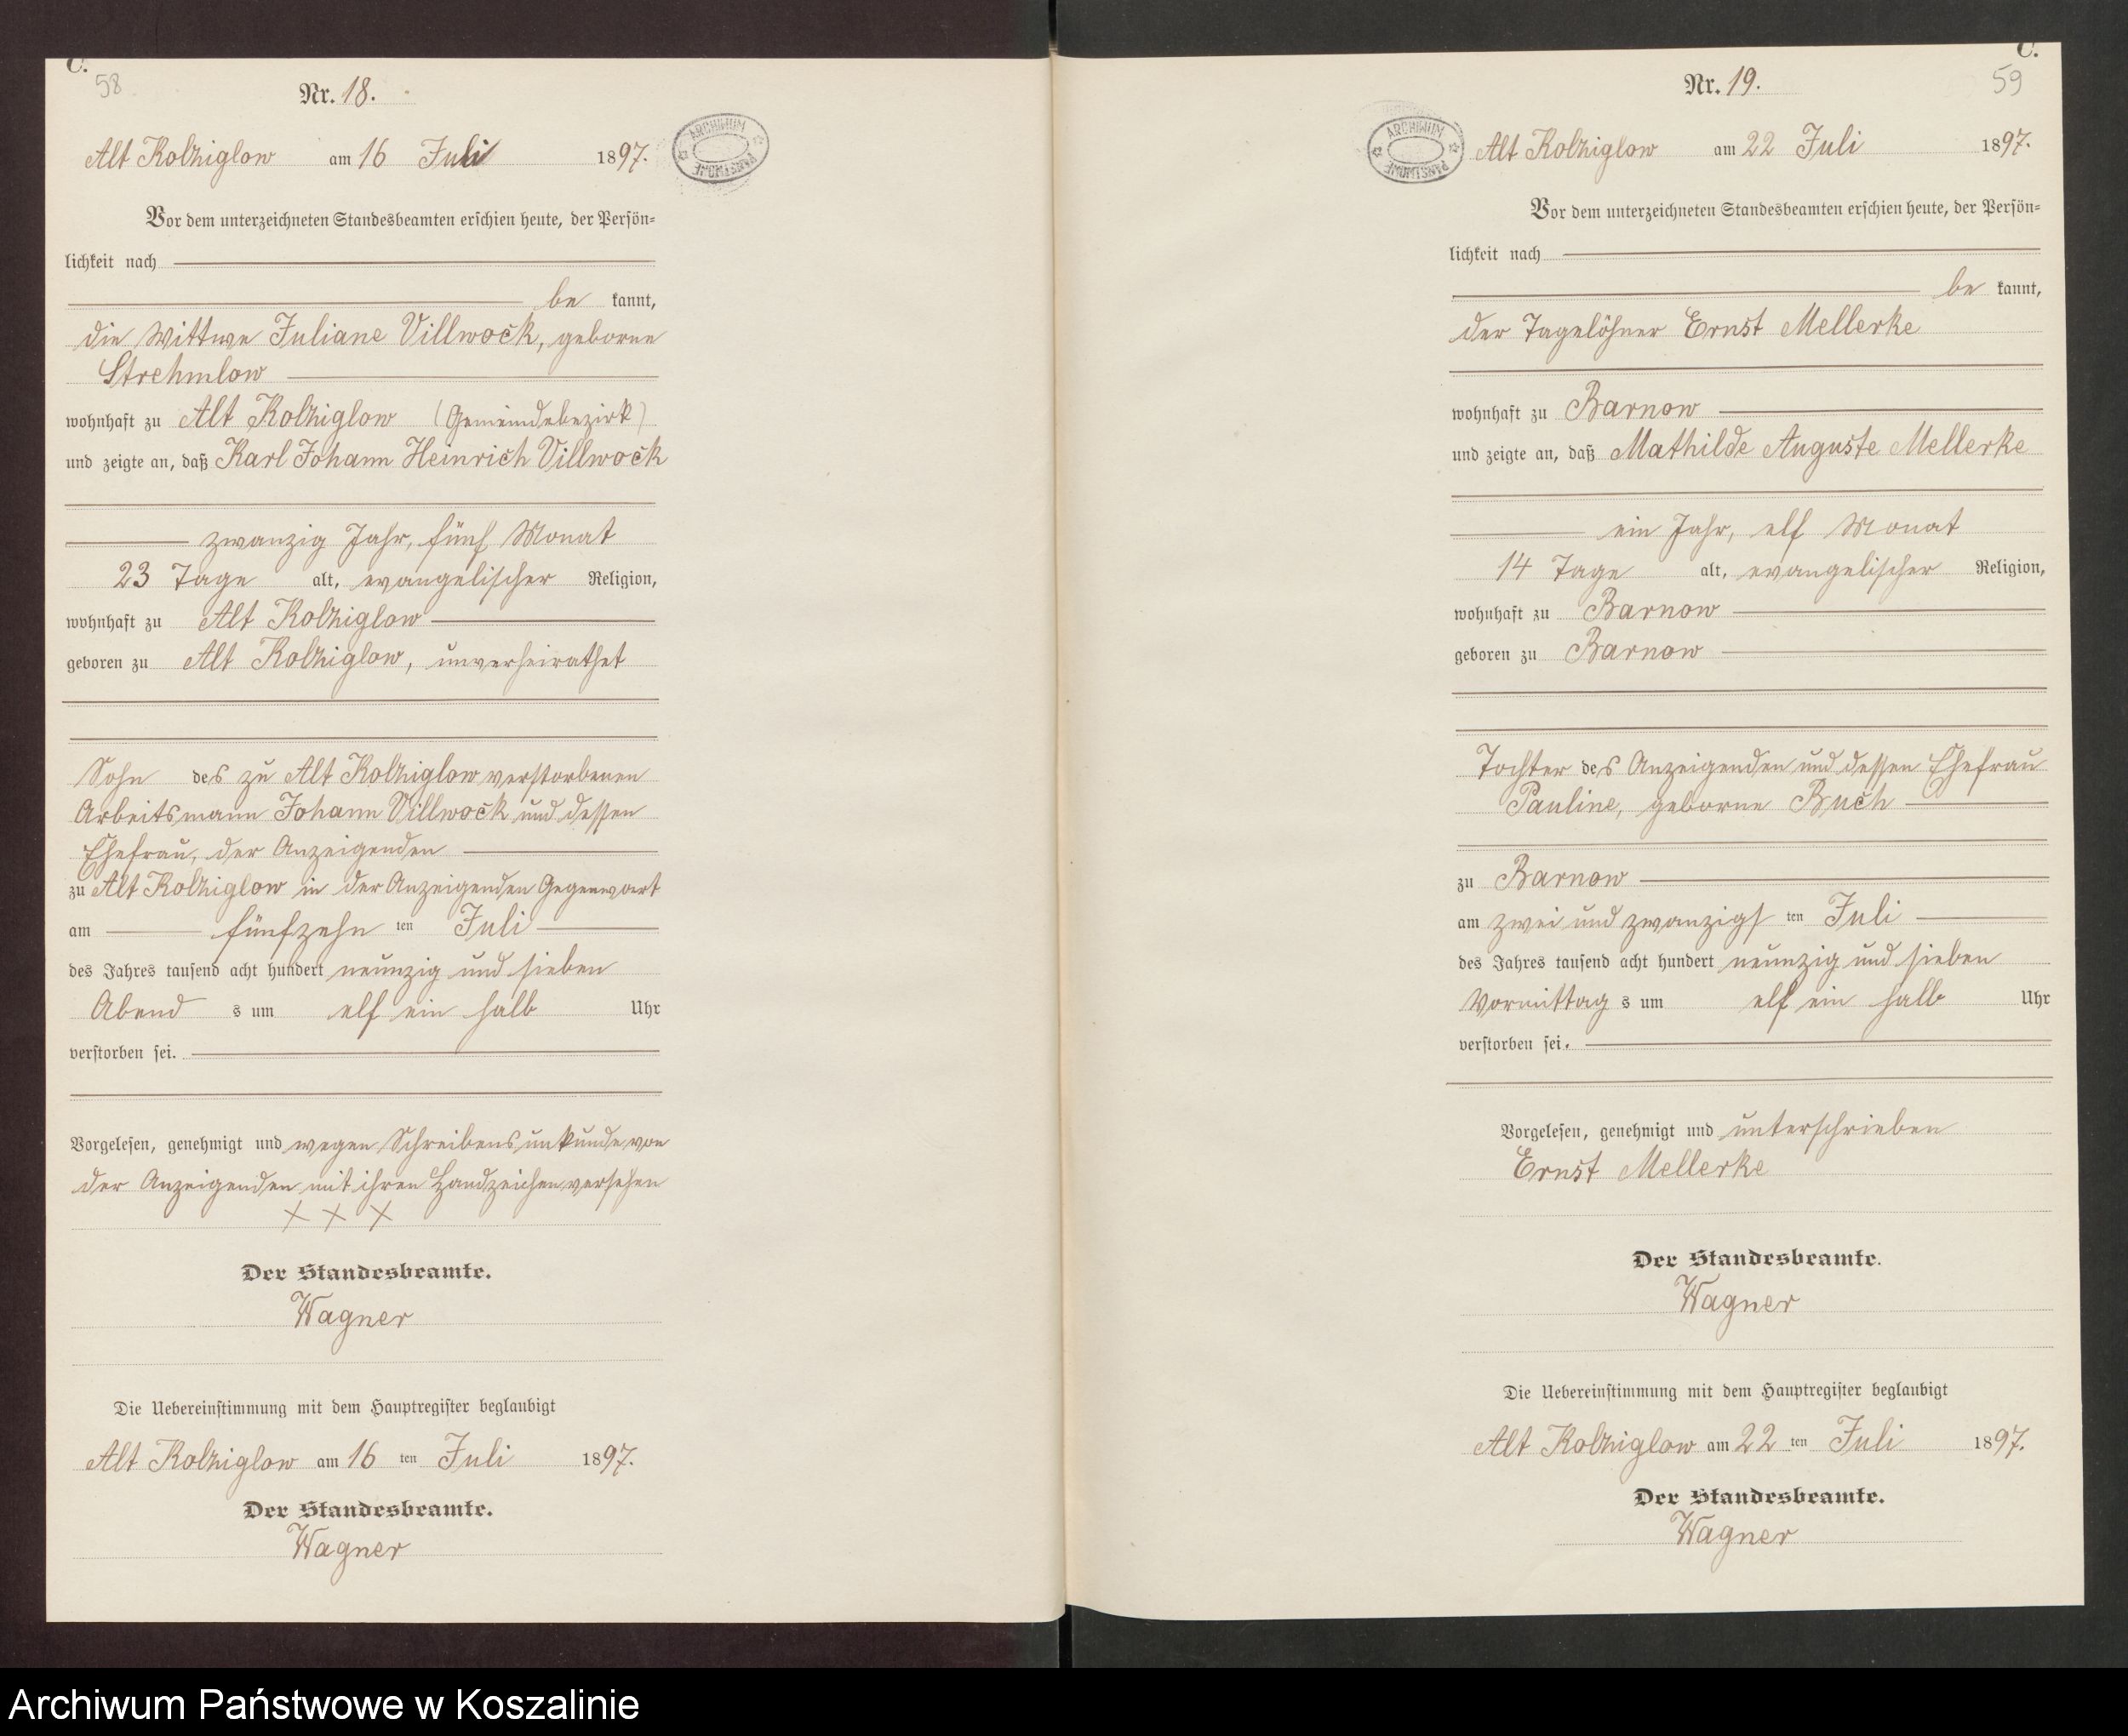 C.
58
Nr. 18.
Alt Kolziglow am 16 Juli 1897.
ARCHIWUM PAŃSTWOWE
Vor dem unterzeichneten Standesbeamten erschien heute, der Persön=
lichkeit nach
be kannt,
die Wittwe Juliane Villwock, geborne
Strehmlow
wohnhaft zu Alt Kolziglow (Gemeindebezirk)
und zeigte an, daß Karl Johann Heinrich Villwock
zwanzig Jahr, fünf Monat
23 Tage alt, evangelischer Religion,
wohnhaft zu Alt Kolziglow
geboren zu Alt Kolziglow, unverheirathet
Sohn des zu Alt Kolziglow verstorbenen
Arbeitsmann Johann Villwock und dessen
Ehefrau, der Anzeigenden
zu Alt Kolziglow in der Anzeigenden Gegenwart
am fünfzehn ten Juli
des Jahres tausend acht hundert neunzig und sieben
Abend s um elf ein halb Uhr
verstorben sei.
Vorgelesen, genehmigt und wegen Schreibensunkunde von
der Anzeigenden mit ihren Handzeichen versehen
X X X
Der Standesbeamte.
Wagner
Die Uebereinstimmung mit dem Hauptregister beglaubigt
Alt Kolziglow am 16 ten Juli 1897.
Der Standesbeamte.
Wagner
C.
59
Nr. 19.
ARCHIWUM PAŃSTWOWE
Alt Kolziglow am 22 Juli 1897.
Vor dem unterzeichneten Standesbeamten erschien heute, der Persön=
lichkeit nach
be kannt,
der Tagelöhner Ernst Mellerke
wohnhaft zu Barnow
und zeigte an, daß Mathilde Auguste Mellerke
ein Jahr, elf Monat
14 Tage alt, evangelischer Religion,
wohnhaft zu Barnow
geboren zu Barnow
Tochter des Anzeigenden und dessen Ehefrau
Pauline, geborne Buch
zu Barnow
am zwei und zwanzigs ten Juli
des Jahres tausend acht hundert neunzig und sieben
Vormittag s um elf ein halb Uhr
verstorben sei.
Vorgelesen, genehmigt und unterschrieben
Ernst Mellerke
Der Standesbeamte.
Wagner
Die Uebereinstimmung mit dem Hauptregister beglaubigt
Alt Kolziglow am 22 ten Juli 1897.
Der Standesbeamte.
Wagner
Archiwum Państwowe w Koszalinie